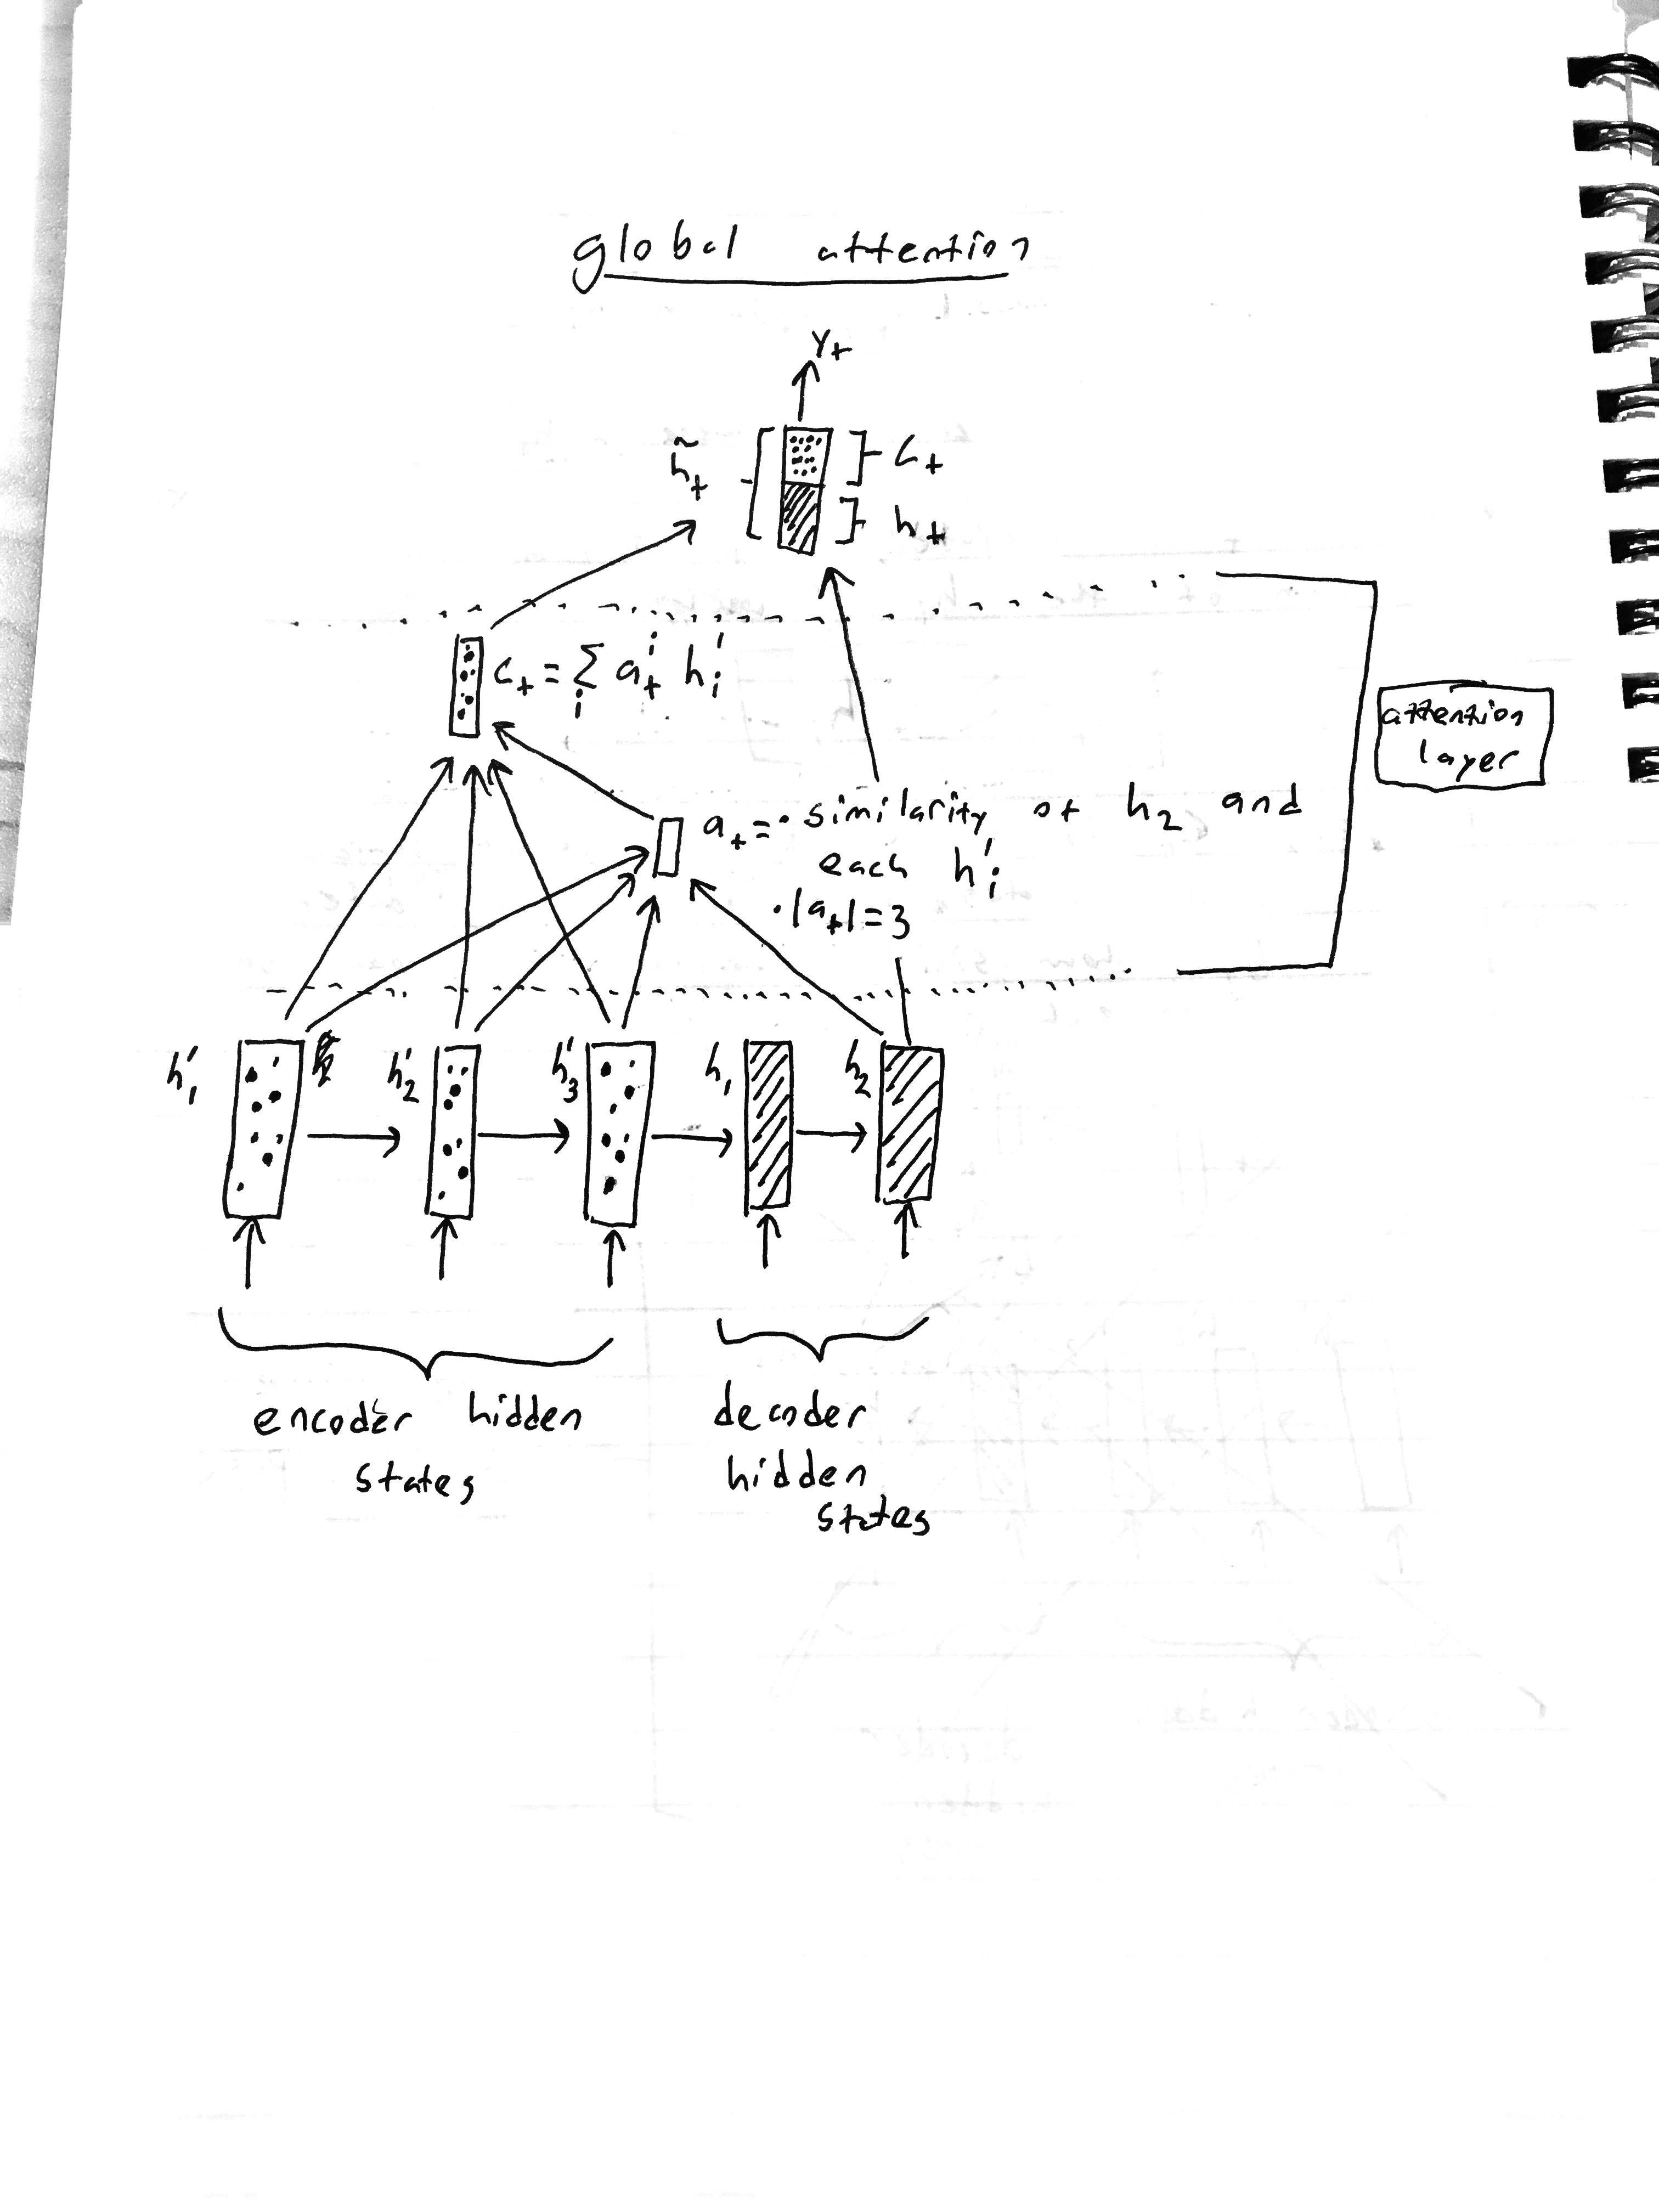 global attention
y_t
h̃_t
c_t
h_t
c_t = Σ_i a_t^i h'_i
attention
layer
a_t = · similarity of h_2 and
each h'_i
· |a_t| = 3
h'_1 h'_2 h'_3 h_1 h_2
encoder hidden
states
decoder
hidden
states